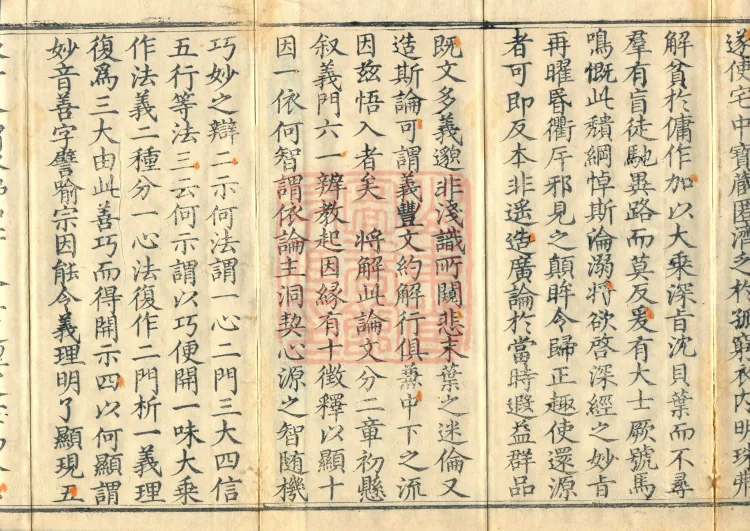 遂使宅中寶藏匱濟乏於孤窮衣內明珠弗
解貧於傭作加以大乘深旨沈貝葉而不尋
羣有盲徒馳異路而莫反爰有大士厥號馬
鳴慨此頹綱悼斯淪溺將欲啓深經之妙旨
再曜昏衢斥邪見之顛眸令歸正趣使還源
者可即反本非遙造廣論於當時遐益群品
既文多義邈非淺識所闚悲末葉之迷倫又
造斯論可謂義豐文約解行俱兼中下之流
因茲悟入者矣 將解此論文分二章初懸
叙義門六一辨教起因緣有十徵釋以顯十
因一依何智謂依論主洞契心源之智隨機
巧妙之辯二示何法謂一心二門三大四信
五行等法三云何示謂以巧便開一味大乘
作法義二種分一心法復作二門析一義理
復爲三大由此善巧而得開示四以何顯謂
妙音善字譬喻宗因能令義理明了顯現五